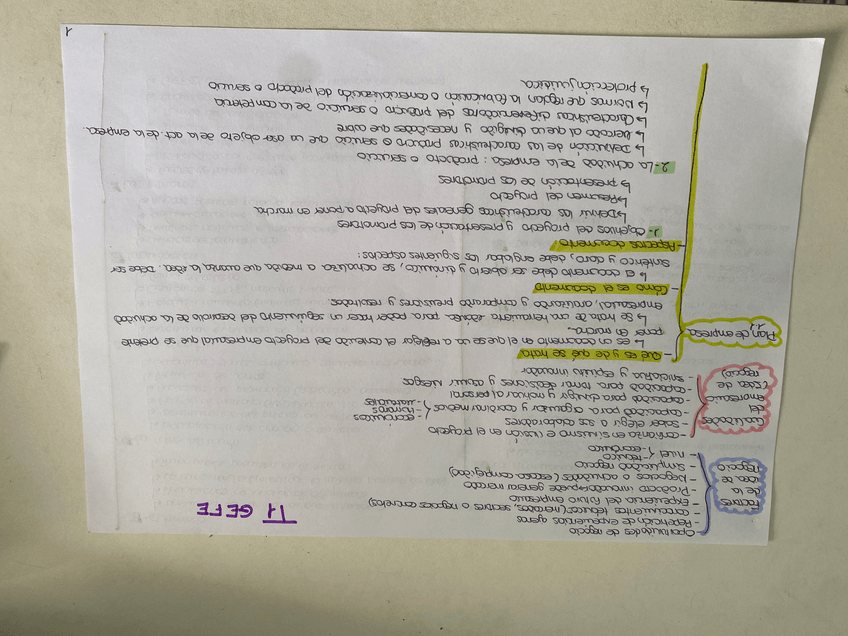 T1 GEFE
Factores
de la
idea de
negocio
- Oportunidades de negocio
- Repetición de experiencias ajenas
- conocimientos técnicos (mercados, sectores o negocios concretos)
- Experiencia del futuro empresario
- Producto innovador que puede generar mercado
- Negocios o actividades (escasa complejidad)
- Simplicidad negocio
- nivel { - técnico
- económico
Cualidades
del
empresario
(idea de
negocio)
- confianza en si mismo e ilusión en el proyecto
- saber elegir a sus colaboradores
- capacidad para organizar y coordinar medios { - económicos
- humanos
- materiales
- capacidad para dirigir y motivar al personal
- capacidad para tomar decisiones y asumir riesgos
- iniciativa y espíritu innovador
Plan de empresa
- Qué es y de q se trata
↳ es un documento en el que se va a reflejar el contenido del proyecto empresarial que se pretende
poner en marcha.
↳ Se trata de una herramienta básica, para poder hacer un seguimiento del desarrollo de la actividad
empresarial, analizando y comparando previsiones y resultados.
- Cómo es el documento
↳ el documento debe ser abierto y dinámico, se actualiza a medida que avanza la idea. Debe ser
sintético y claro, debe englobar los siguientes aspectos:
- Aspectos documento
1- Objetivos del proyecto y presentación de los promotores
↳ Definir las características generales del proyecto a poner en marcha
↳ Resumen del proyecto
↳ presentación de los promotores
2- La actividad de la empresa: producto o servicio
↳ Definición de las características producto o servicio que va a ser objeto de la act. de la empresa.
↳ Mercado al que va dirigido y necesidades que cubre
↳ Características diferenciadoras del producto o servicio de la competencia
↳ Normas que regulan la fabricación o comercialización del producto o servicio
↳ protección jurídica.
1